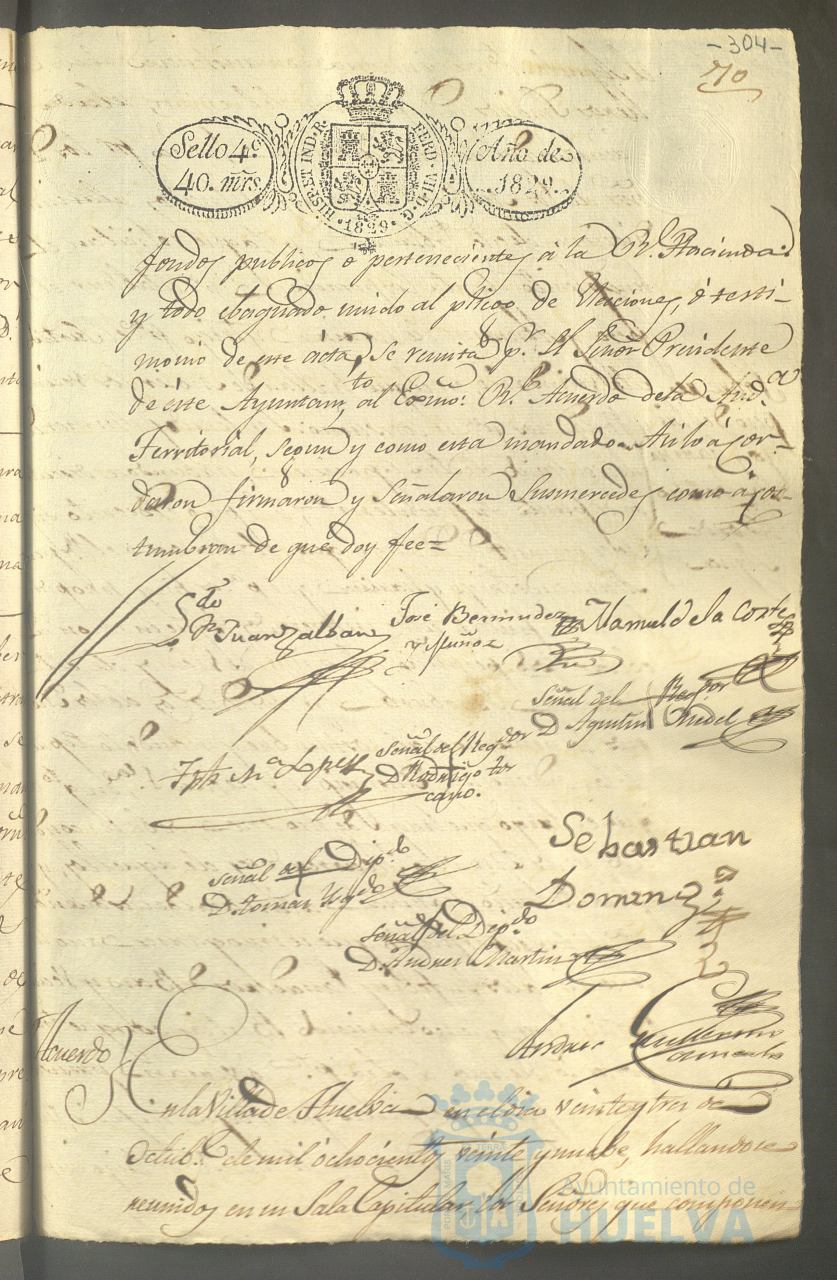 -304-
710
Sello 4.º
40. mrs.
HISP. ET IND. R.
FERD. VII. D. G.
·1829·
Año de
1829.
fondos publicos o pertenecientes à la R.l Hacienda:
y todo unido al plieco de Vtaciones, ó testi-
monio de este ácta, se remita p.r el Señor Presidente
de éste Ayuntam.to al Exmo. R.l Acuerdo de la Aud.a
Territorial, segun y como esta mandado. Asi lo á cor-
daron firmaron y señalaron Susmercedes como acos-
tumbran de que doy fee=
Juan Zalban
José Bermudez
y Muñoz
Manuel de la Corte
Señal del Reg.dor
D. Agustin
Señal del Reg.dor
D. Rodrigo tos
cano.
Jph M.a Lopez
Sebastian
Doming.z
Señal del Dip.do
D. Tomas
Señal del Dip.do
D. Andres Martin
Andres Guillermo
Acuerdo
En la Villa de Huelva en el dia veinte y tres de
Octub.e de mil óchocientos veinte y nuebe, hallandose
reunidos en su Sala Capitular los Señores que componen
Ayuntamiento de
HUELVA